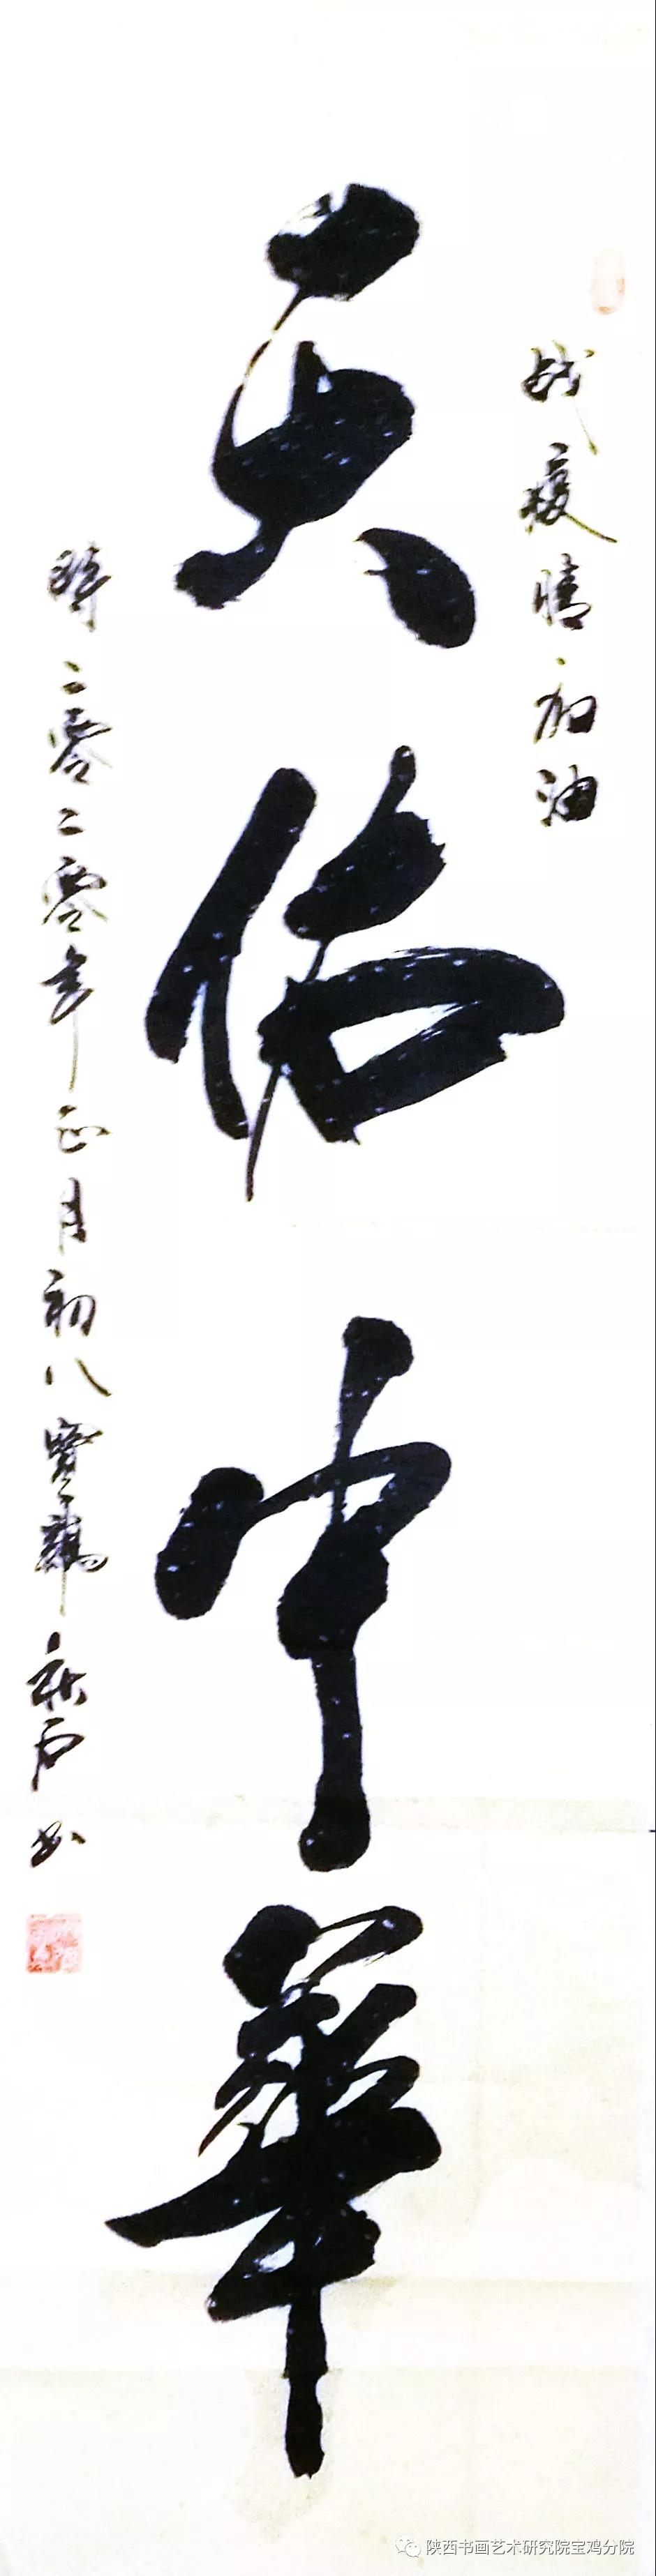 战疫情加油
天佑中華
時二零二零年正月初八寶鷄秋石书
陕西书画艺术研究院宝鸡分院